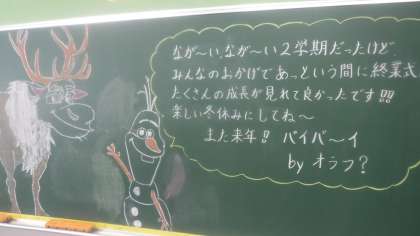 なが～い、なが～い2学期だったけど、
みんなのおかげであっという間に終業式
たくさんの成長が見れて良かったです!!
楽しい冬休みにしてね～
また来年!! バイバ～イ
by オラフ?